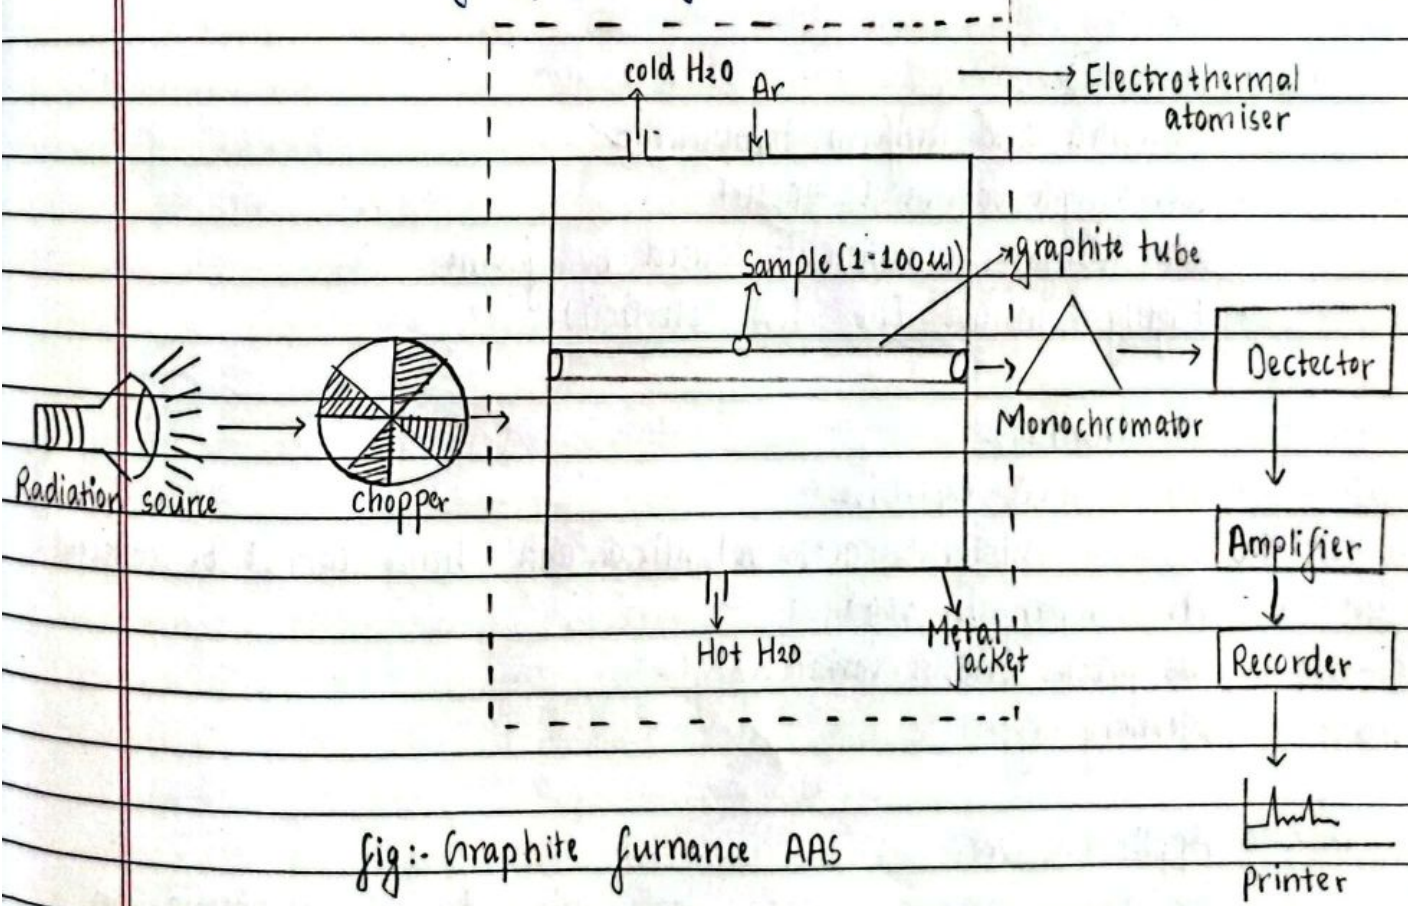 cold H2O
Ar
Electrothermal
atomiser
Sample (1-100ul)
graphite tube
Dectector
Monochromator
Radiation source
chopper
Amplifier
Metal
jacket
Hot H2O
Recorder
fig:- Graphite furnance AAS
printer